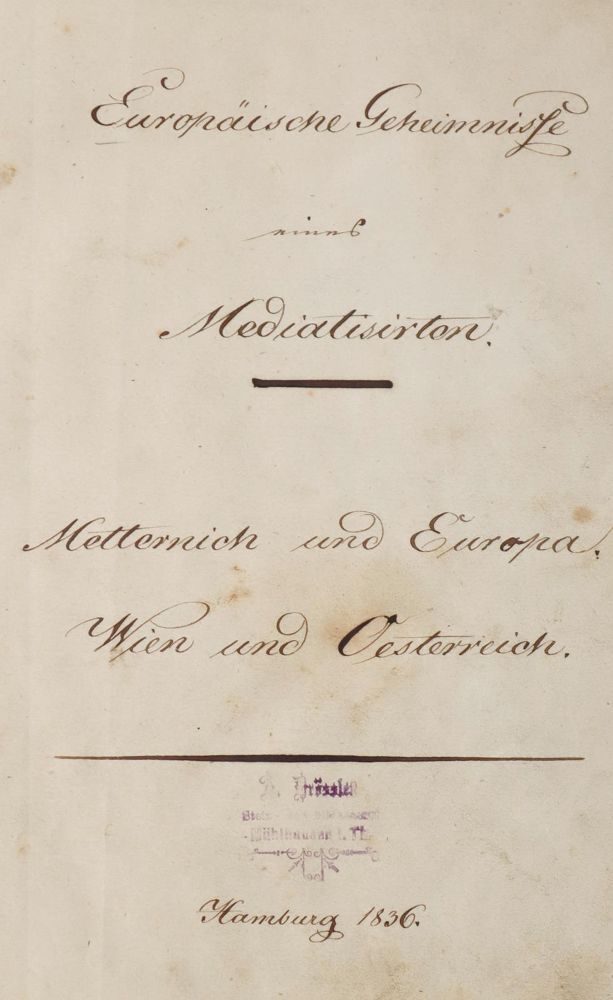 Europäische Geheimnisse
eines
Mediatisirten.
Metternich und Europa.
Wien und Oesterreich.
Mühlhausen i. Th.
Hamburg 1836.